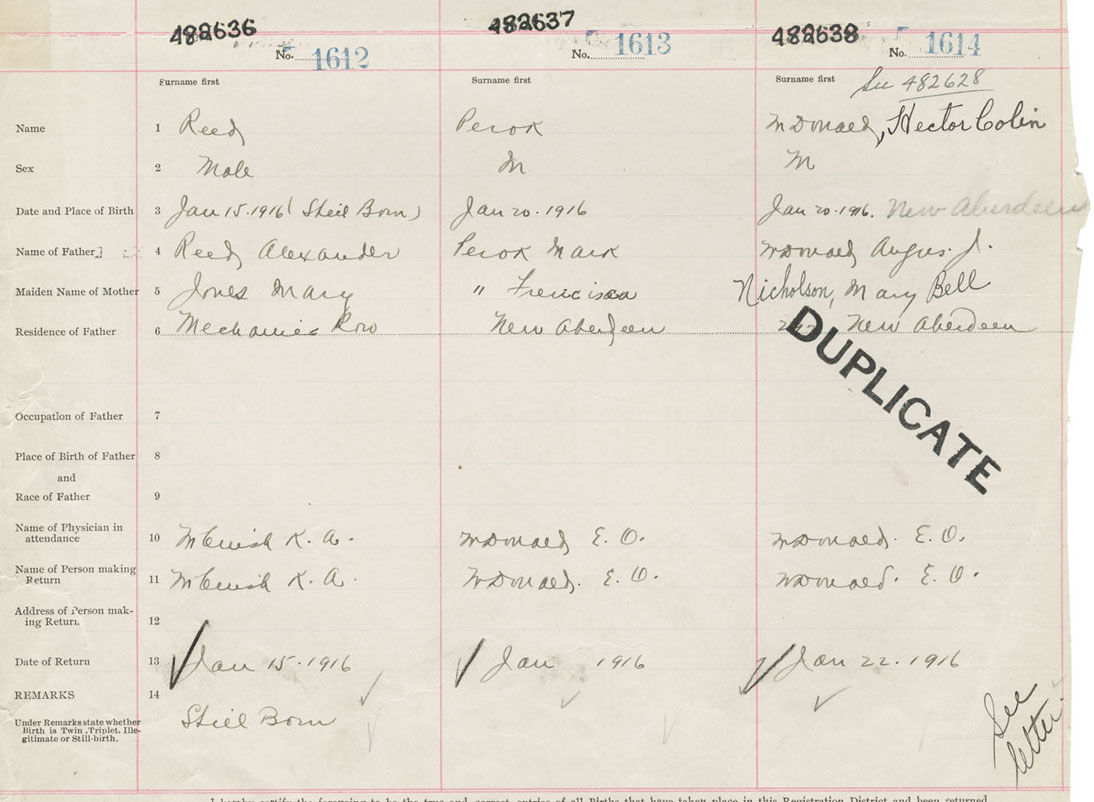 482636 482637 482638
No. 1612 No. 1613 No. 1614
Surname first Surname first Surname first See 482628
Name 1 Reed Perok McDonald, Hector Colin
Sex 2 Male M M
Date and Place of Birth 3 Jan 15. 1916 (Still Born) Jan 20. 1916 Jan 20. 1916. New Aberdeen
Name of Father 4 Reed Alexander Perok Mark McDonald Angus J.
Maiden Name of Mother 5 Jones Mary " Nicholson, Mary Bell
Residence of Father 6 Mechanics Row New Aberdeen New Aberdeen
DUPLICATE
Occupation of Father 7
Place of Birth of Father 8
and
Race of Father 9
Name of Physician in
attendance 10 K. A. McDonald E. O. McDonald. E. O.
Name of Person making
Return 11 K. A. McDonald. E. O. McDonald. E. O.
Address of Person mak-
ing Return. 12
Date of Return 13 Jan 15. 1916 Jan 1916 Jan 22. 1916
REMARKS 14
Still Born
Under Remarks state whether
Birth is Twin, Triplet, Ille-
gitimate or Still-birth.
See
letter
I hereby certify the foregoing to be the true and correct entries of all Births that have taken place in this Registration District and been returned